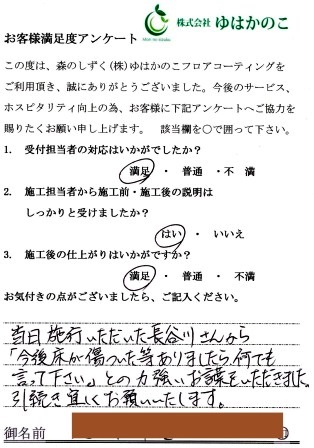 株式会社 ゆはかのこ
お客様満足度アンケート
この度は、森のしずく(株)ゆはかのこフロアコーティングを
ご利用頂き、誠にありがとうございました。今後のサービス、
ホスピタリティ向上の為、お客様に下記アンケートへご協力を
賜りたくお願い申し上げます。 該当欄を○で囲って下さい。
1. 受付担当者の対応はいかがでしたか?
満足 ・ 普通 ・不 満
2. 施工担当者から施工前・施工後の説明は
しっかりと受けましたか?
はい ・ いいえ
3. 施工後の仕上がりはいかがですか?
満足 ・ 普通 ・ 不満
お気付きの点がございましたら、ご記入ください。
当日施行いただいた長谷川さんから
「今後床が傷ついた等ありましたら何でも
言って下さい。」との力強いお言葉をいただきました。
引続き宜しくお願いいたします。
御名前